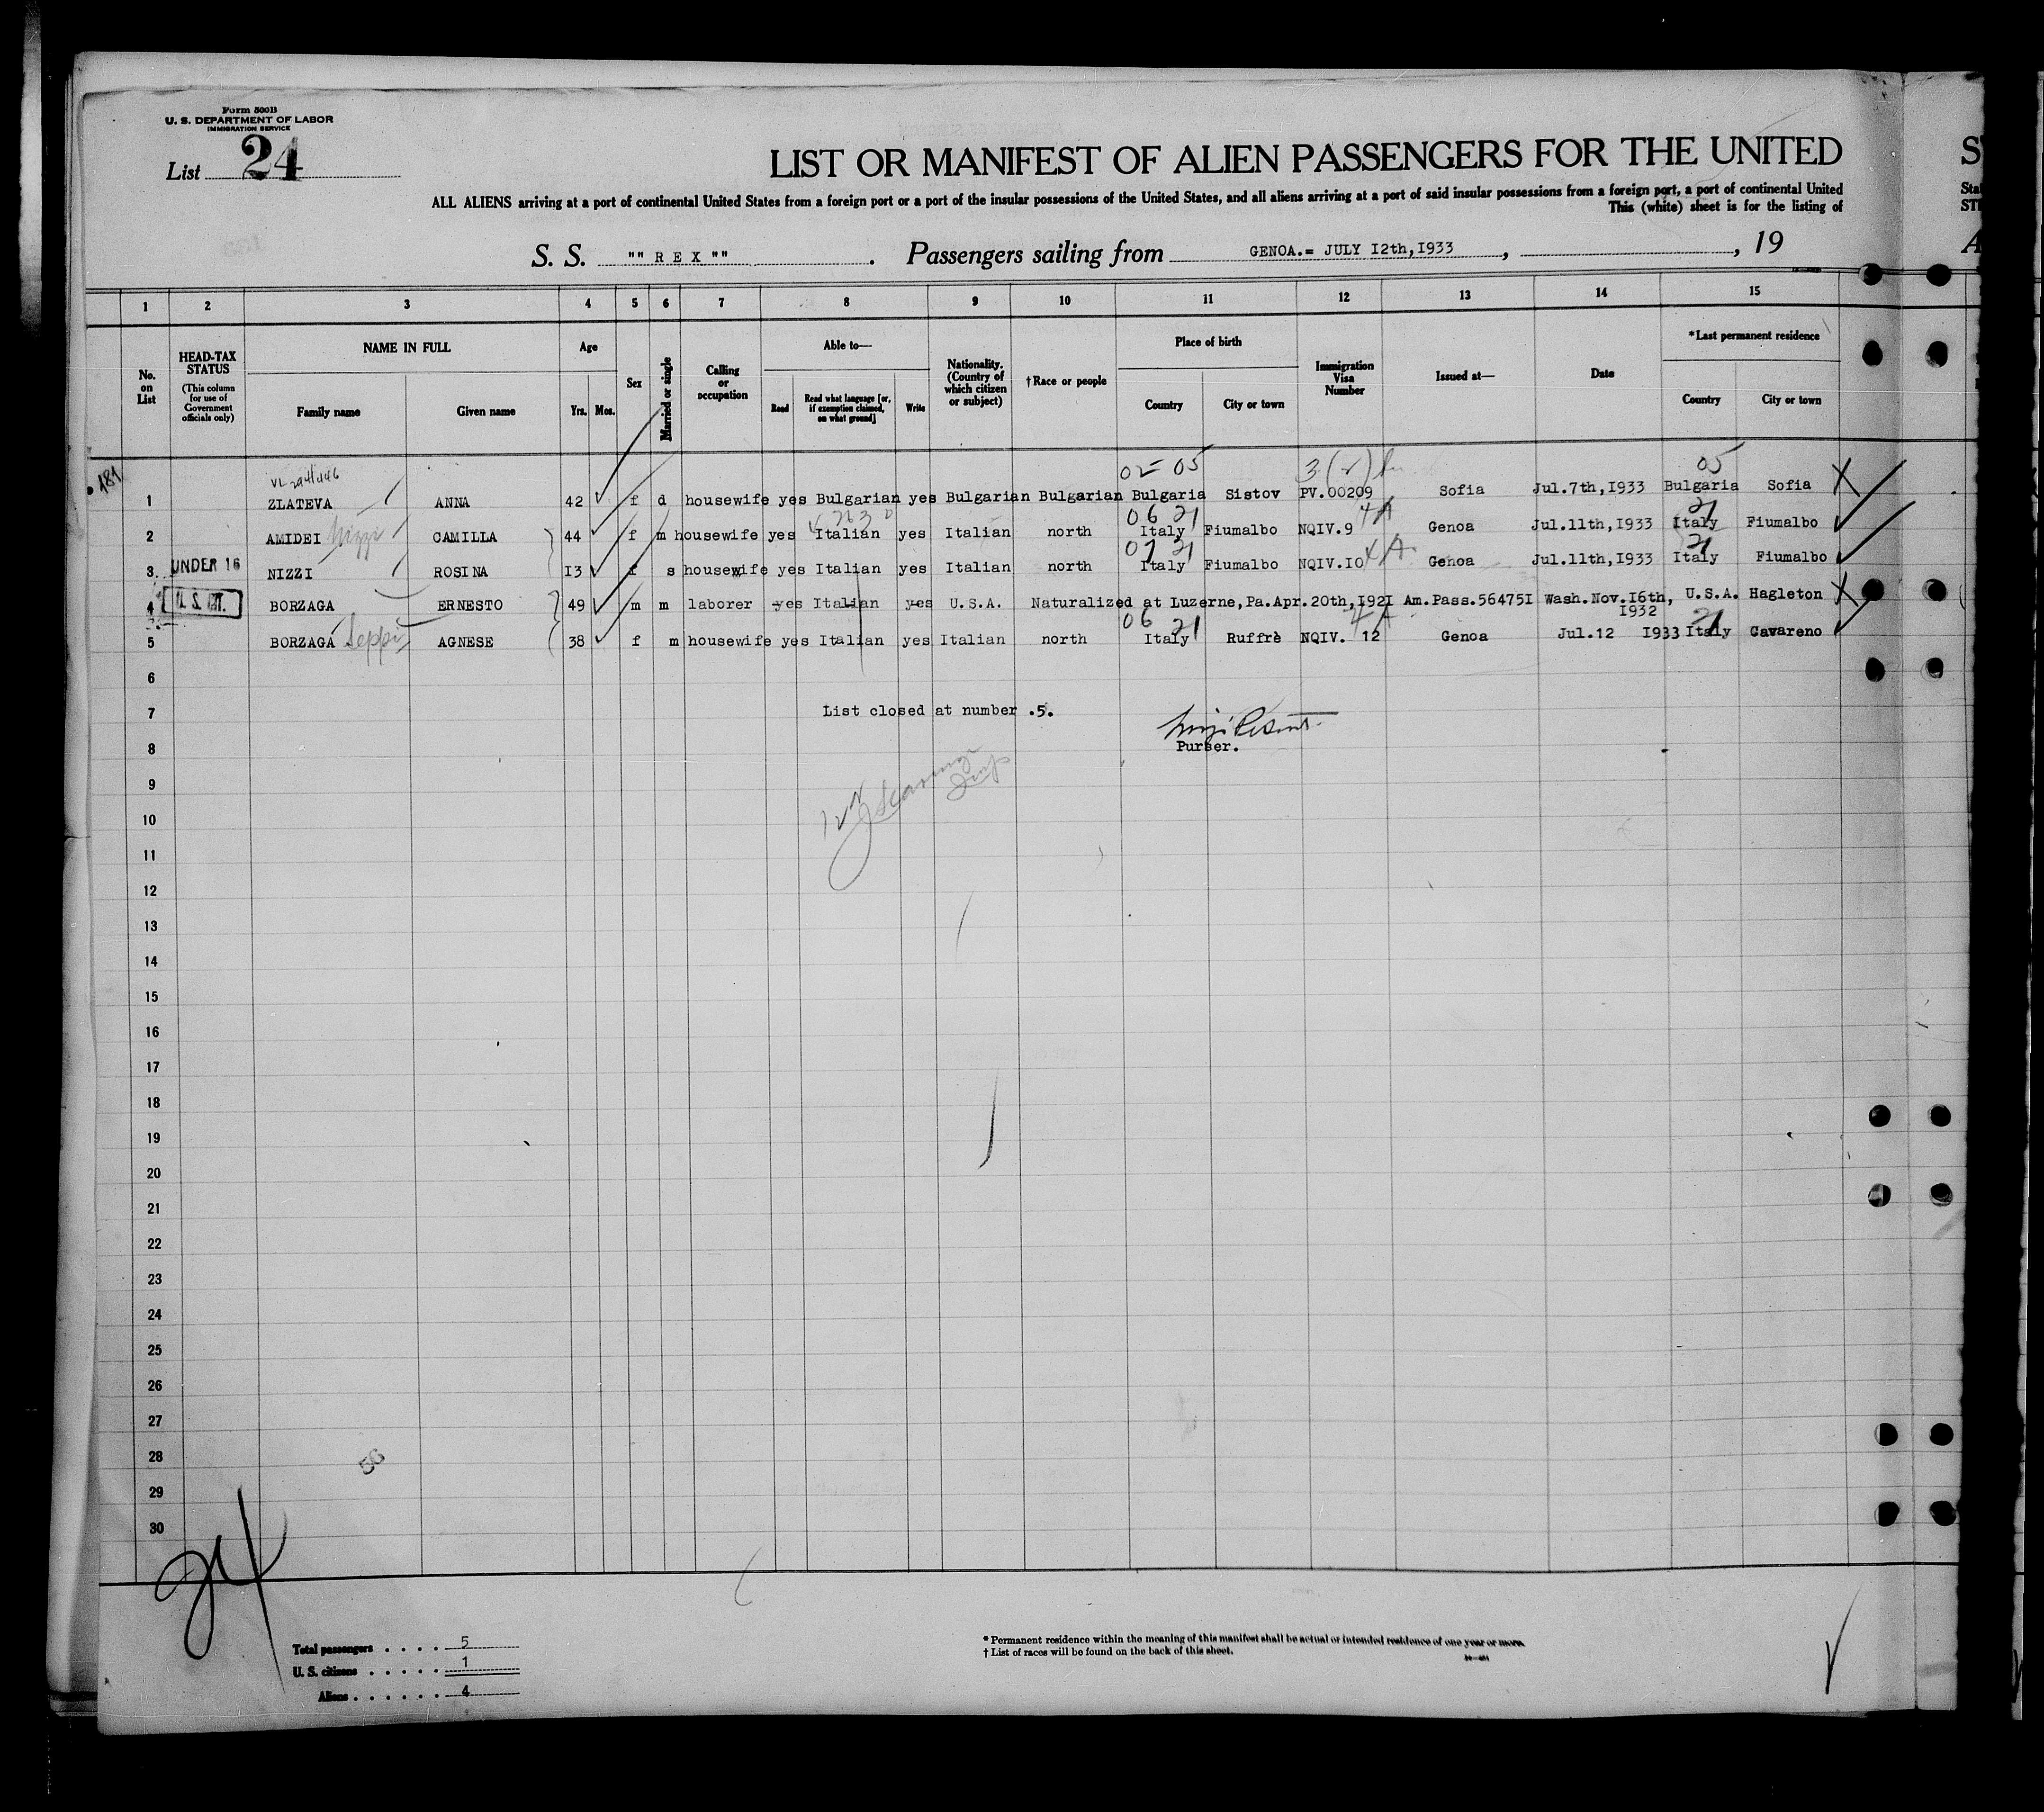 Form 500B
U. S. DEPARTMENT OF LABOR
IMMIGRATION SERVICE
List 24
LIST OR MANIFEST OF ALIEN PASSENGERS FOR THE UNITED
ALL ALIENS arriving at a port of continental United States from a foreign port or a port of the insular possessions of the United States, and all aliens arriving at a port of said insular possessions from a foreign port, a port of continental United
This (white) sheet is for the listing of
S. S. "" R E X "" . Passengers sailing from GENOA.= JULY I2th,I933 , , 19
1 2 3 4 5 6 7 8 9 10 11 12 13 14 15
No. on List
HEAD-TAX STATUS (This column for use of Government officials only)
NAME IN FULL
Family name Given name
Age
Yrs. Mos.
Sex
Married or single
Calling or occupation
Able to—
Read Read what language [or, if exemption claimed, on what ground] Write
Nationality. (Country of which citizen or subject)
†Race or people
Place of birth
Country City or town
Immigration Visa Number
Issued at—
Date
*Last permanent residence
Country City or town
02 05 3(2) 05
1 ZLATEVA ANNA 42 f d housewife yes Bulgarian yes Bulgarian Bulgarian Bulgaria Sistov PV.00209 Sofia Jul.7th,I933 Bulgaria Sofia
06 21 4A 21
2 AMIDEI Nizzi CAMILLA 44 f m housewife yes Italian yes Italian north Italy Fiumalbo NQIV.9 Genoa Jul.11th,I933 Italy Fiumalbo
07 21 4A 21
3 UNDER 16 NIZZI ROSINA I3 f s housewife yes Italian yes Italian north Italy Fiumalbo NQIV.IO Genoa Jul.11th,I933 Italy Fiumalbo
4 U. S. CIT. BORZAGA ERNESTO 49 m m laborer yes Italian yes U.S.A. Naturalized at Luzerne,Pa.Apr.20th,I92I Am.Pass.56475I Wash.Nov.I6th, I932 U.S.A. Hagleton
06 21 4A 21
5 BORZAGA Seppi AGNESE 38 f m housewife yes Italian yes Italian north Italy Ruffrè NQIV. 12 Genoa Jul.12 I933 Italy Cavareno
6
7 List closed at number .5.
8 Purser.
9
10
11
12
13
14
15
16
17
18
19
20
21
22
23
24
25
26
27
28
29
30
56
24
Total passengers . . . . 5
U. S. citizens . . . . . 1
Aliens . . . . . . 4
* Permanent residence within the meaning of this manifest shall be actual or intended residence of one year or more.
† List of races will be found on the back of this sheet.